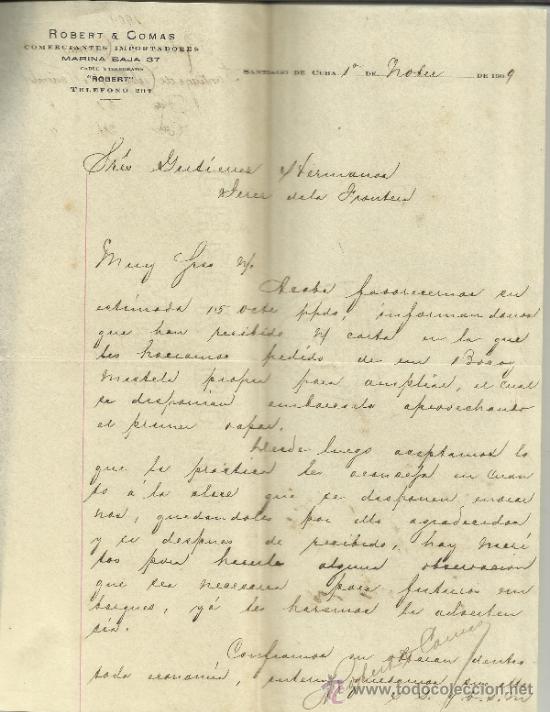 ROBERT & COMAS
COMERCIANTES IMPORTADORES
MARINA BAJA 37
CABLE Y TELEGRAFO
"ROBERT"
TELEFONO 211
SANTIAGO DE CUBA 1º DE Nobre DE 1909
Sres Gutierrez Hermanos
Jerez dela Frontera
Muy Sres
Acaba favorecernos su
estimada 15 octe ppdo, informandonos
que han recibido carta en la que
les haciamos pedido de un Bocoy
Mistela propia para ampliar, el cual
se disponian embarcarlo aprovechando
el primer vapor.
Desde luego aceptamos lo
que la practica les aconseja en cuan
to á la clase que se disponen enviar
nos, quedandoles por ello agradecidos
y si despues de recibido, hay meri
tos para hacerle alguna observacion
que sea necesaria para futuros em
barques, yá les haremos la adverten
cia.
Confiamos su dentro
toda economia,
Robert & Comas
todocoleccion.net